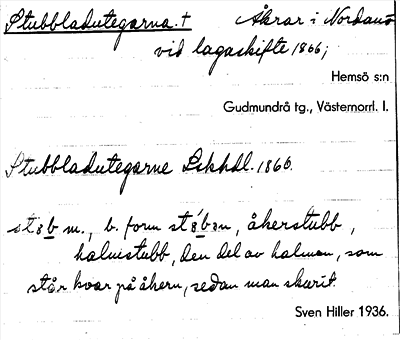 Stubbladutegarna.† Åkrar i Nordanö
vid lagaskifte 1866;
Hemsö s:n
Gudmundrå tg., Västernorrl. l.
Stubbladutegarne Lskhdl. 1866.
m., b. form åkerstubb,
halmstubb, den del av halmen, som
står kvar på åkern, sedan man skurit.
Sven Hiller 1936.